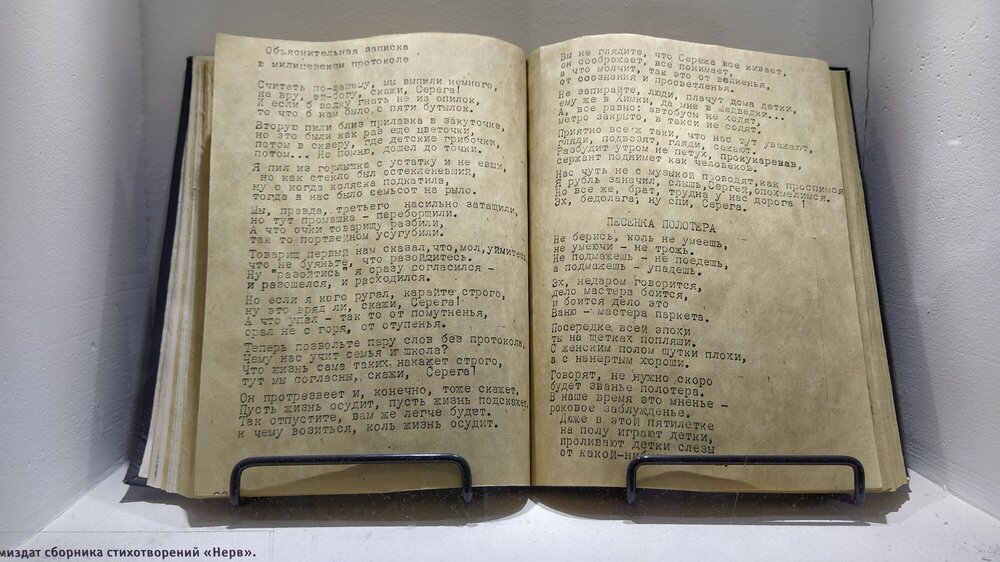 Объяснительная записка
в милицейском протоколе
Считать по-вашему, мы выпили немного,
не вру, ей-богу, скажи, Серега!
И если б водку гнать не из опилок,
то что б нам было с пяти бутылок.
Вторую пили близ прилавка в закуточке,
но это были как раз еще цветочки,
потом в скверу, где детские грибочки,
потом... Не помню, дошел до точки.
Я пил из горлышка с устатку и не евши,
но как стекло был остекленевший,
ну а когда коляска подкатила,
тогда в нас было семьсот на рыло.
Мы, правда, третьего насильно затащили,
но тут промашка - переборщили.
А что очки товарищу разбили,
так то портвейном усугубили.
Товарищ первый нам сказал,что,мол,уймитесь
что не буяньте, что разойдитесь.
Ну "разойтись" я сразу согласился -
и разошелся, и расходился.
Но если я кого ругал, карайте строго,
ну это вряд ли, скажи, Серега!
А что упал - так то от помутненья,
орал не с горя, от отупенья.
Теперь позвольте пару слов без протокола.
Чему нас учит семья и школа?
Что жизнь сама таких накажет строго,
тут мы согласны, скажи, Серега!
Он протрезвеет и, конечно, тоже скажет.
Пусть жизнь осудит, пусть жизнь подскажет,
Так отпустите, вам же легче будет.
к чему возиться, коль жизнь осудит.
Вы не глядите, что Сережа все кивает,
он соображает, все понимает,
а что молчит, так это от волненья,
от осознания и просветленья.
Не запирайте, люди, плачут дома детки,
ему же в Химки, да мне в медведки...
А, все равно: автобусы не ходят,
метро закрыто, в такси не содят.
Приятно все-ж таки, что нас тут уважают,
гляди, подвозят, гляди, сажают.
Разбудит утром не петух, прокукарекав,
сержант поднимет как человеков.
Нас чуть не с музыкой проводят,как проспимся
Я рубль заначил, слышь,Сергей,опохмелимся.
Но все же, брат, трудна у нас дорога !
Эх, бедолага, ну спи, Серега.
ПЕСЕНКА ПОЛОТЕРА
Не берись, коль не умеешь,
не умеючи - не трожь.
Не подмажешь - не поедешь,
а подмажешь - упадешь.
Эх, недаром говорится,
дело мастера боится,
и боится дело это
Ваню - мастера паркета.
Посередке всей эпохи
ты на щетках попляши.
С женским полом шутки плохи,
а с натертым хороши.
Говорят, не нужно скоро
будет званье полотера.
В наше время это мненье -
роковое заблужденье.
Даже в этой пятилетке
на полу играют детки,
проливают детки слезы
от какой-ниб
миздат сборника стихотворений «Нерв».